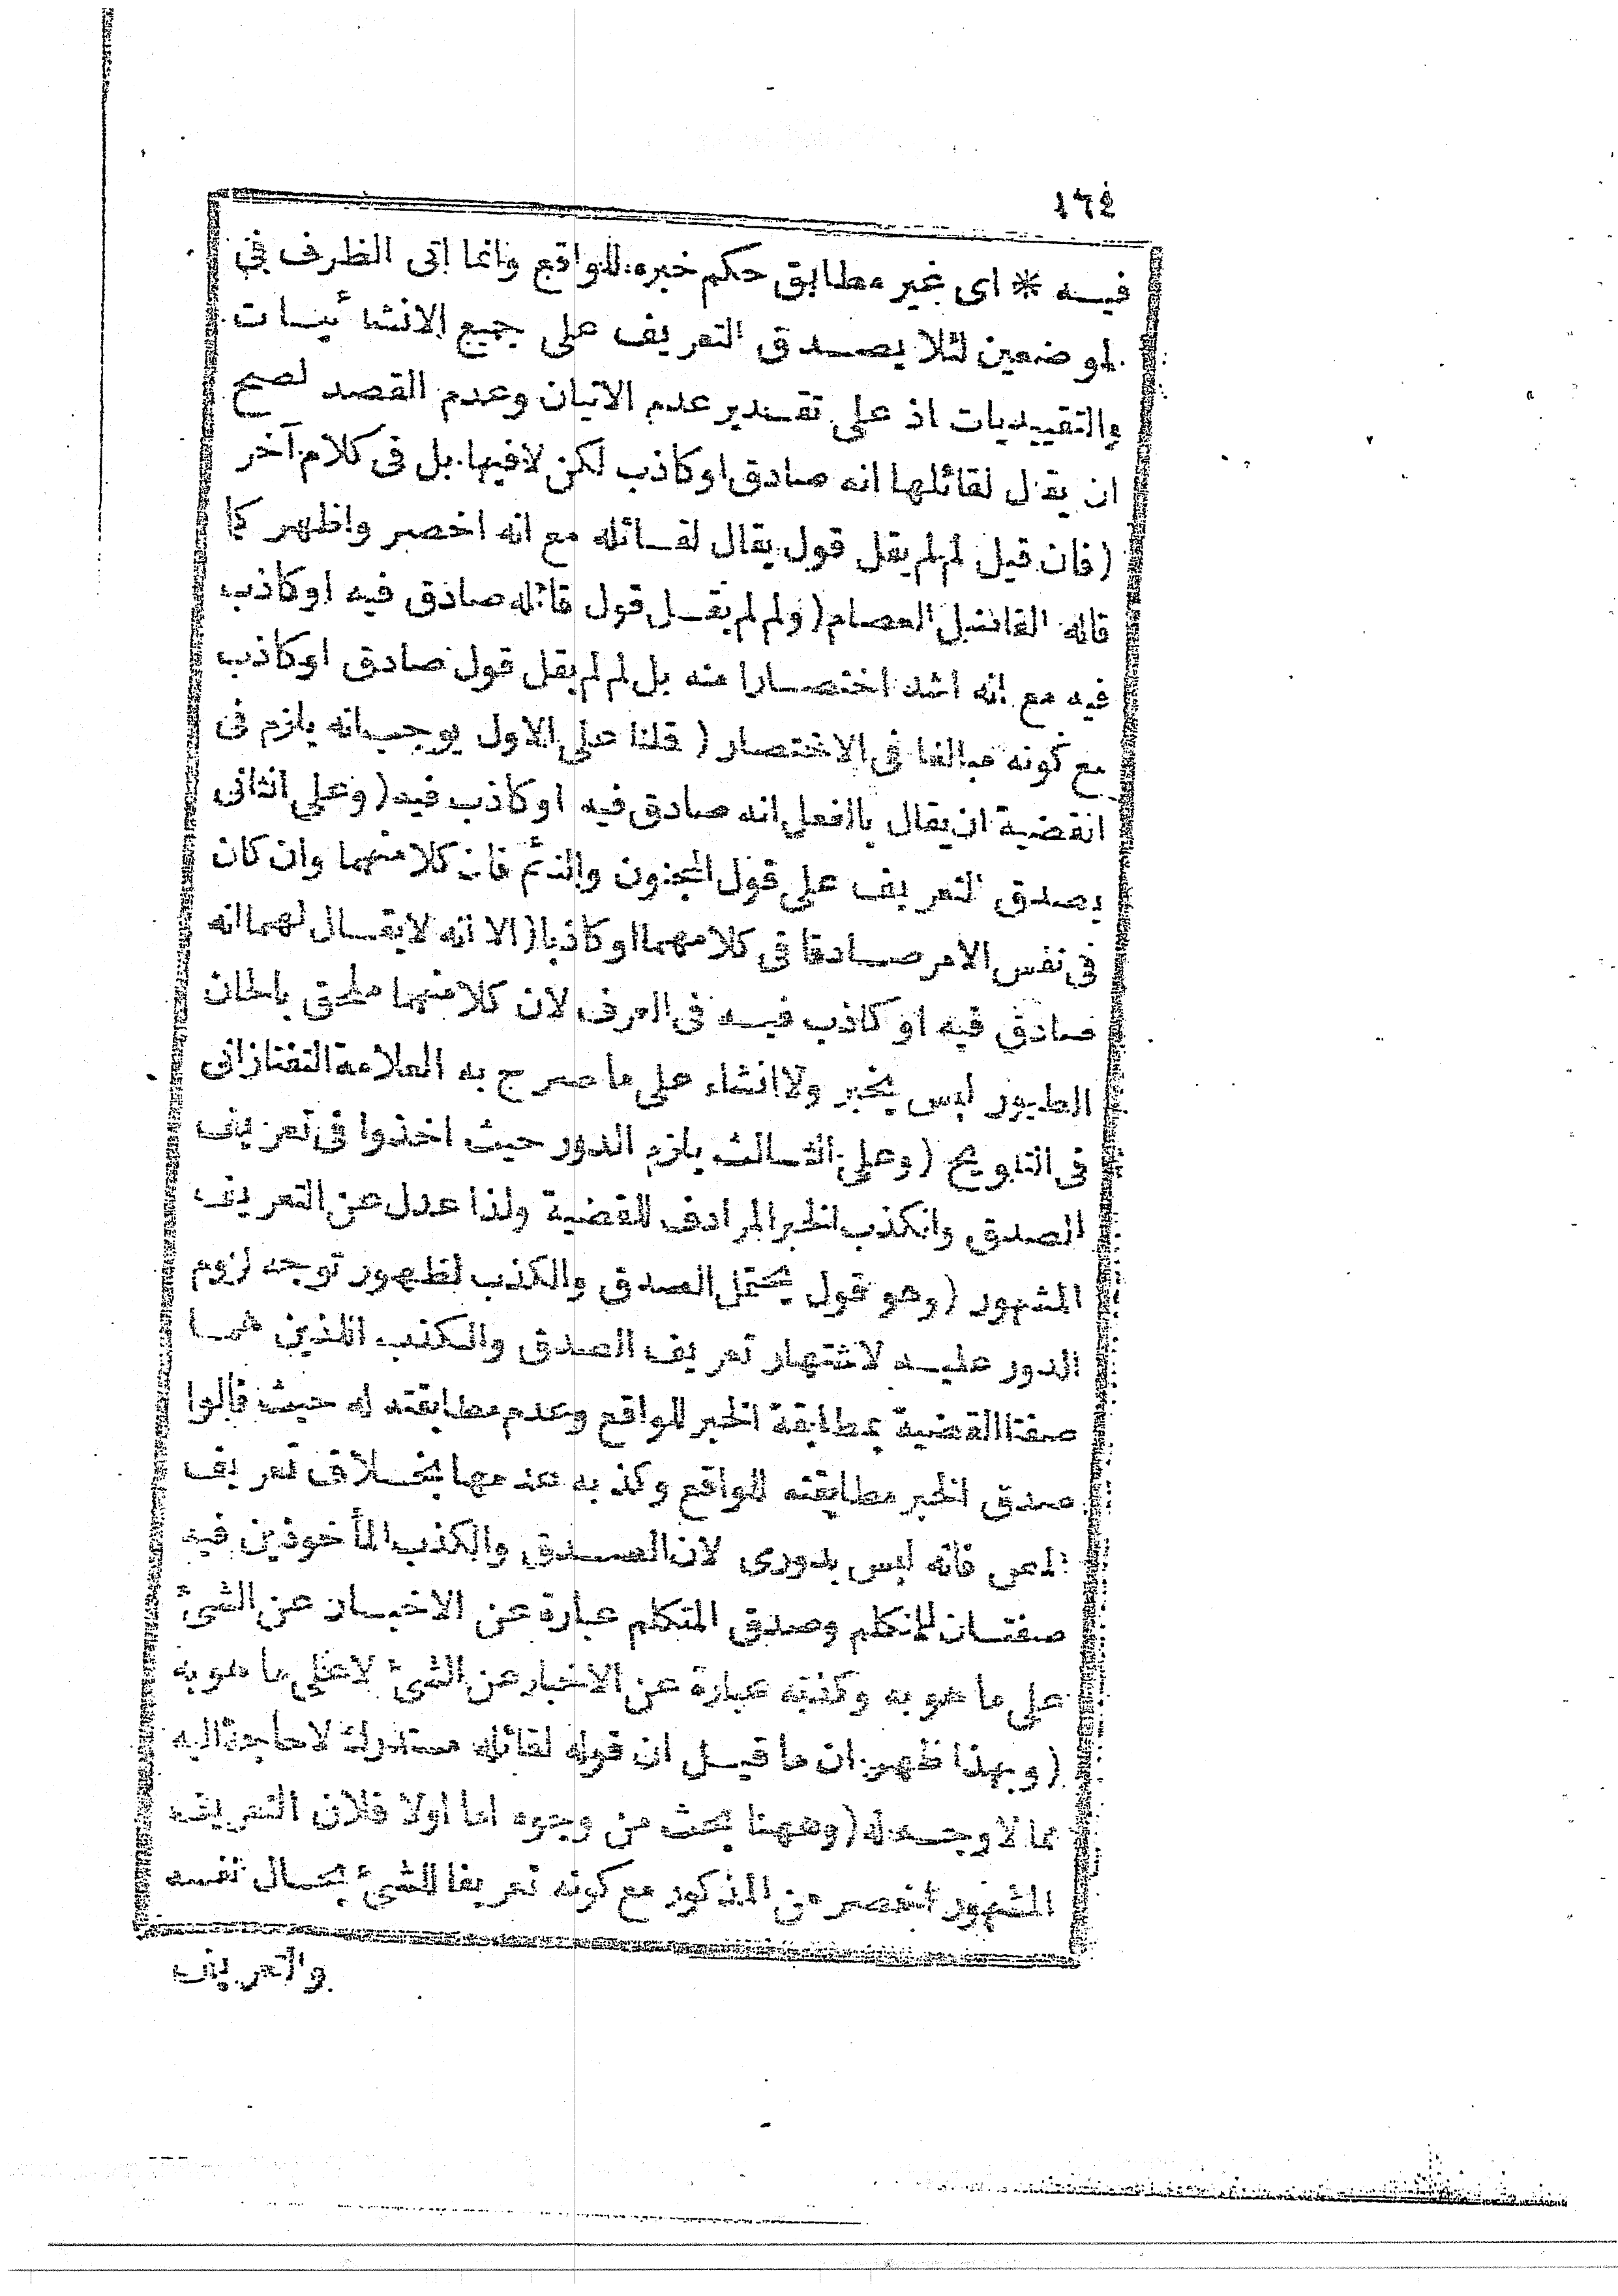 ١٦٤
فيه * اى غير مطابق حكم خبره للواقع وانما اتى الظرف فى
الموضعين لئلا يصدق التعريف على جميع الانشائيات
والتقييديات اذ على تقدير عدم الاتيان وعدم القصد لصح
ان يقال لقائلها انه صادق او كاذب لكن لا فيها بل فى كلام آخر
(فان قيل لم لم يقل قول يقال لقائله مع انه اخصر واظهر كما
قاله الفاضل العصام (ولم لم يقل قول قائله صادق فيه او كاذب
فيه مع انه اشد اختصارا منه بل لم لم يقل قول صادق او كاذب
مع كونه مبالغا فى الاختصار (قلنا على الاول يوجب انه يلزم فى
القضية ان يقال بالفعل انه صادق فيه او كاذب فيه (وعلى الثانى
يصدق التعريف على قول المجنون والنائم فان كلا منهما وان كان
فى نفس الامر صادقا فى كلامهما او كاذبا (الا انه لا يقال لهما انه
صادق فيه او كاذب فيه فى العرف لان كلا منهما ملحق بالحان
الطيور ليس بخبر ولا انشاء على ما صرح به العلامة التفتازانى
فى التلويح (وعلى الثالث يلزم الدور حيث اخذوا فى تعريف
الصدق والكذب الخبر المرادف للقضية ولذا عدل عن التعريف
المشهور (وهو قول يحتمل الصدق والكذب لظهور توجه لزوم
الدور عليه لاشتهار تعريف الصدق والكذب اللذين هما
صفتا القضية بمطابقة الخبر للواقع وعدم مطابقته له حيث قالوا
صدق الخبر مطابقته للواقع وكذبه عدمها بخلاف تعريف
المص فانه ليس بدورى لان الصدق والكذب المأخوذين فيه
صفتان للمتكلم وصدق المتكلم عبارة عن الاخبار عن الشئ
على ما هو به وكذبه عبارة عن الاخبار عن الشئ لا على ما هو به
(وبهذا ظهر ان ما قيل ان قوله لقائله مستدرك لا حاجة اليه
مما لا وجه له (وههنا بحث من وجوه اما اولا فلان التعريف
المشهور اخصر من المذكور مع كونه تعريفا للشئ بحال نفسه
والتعريف